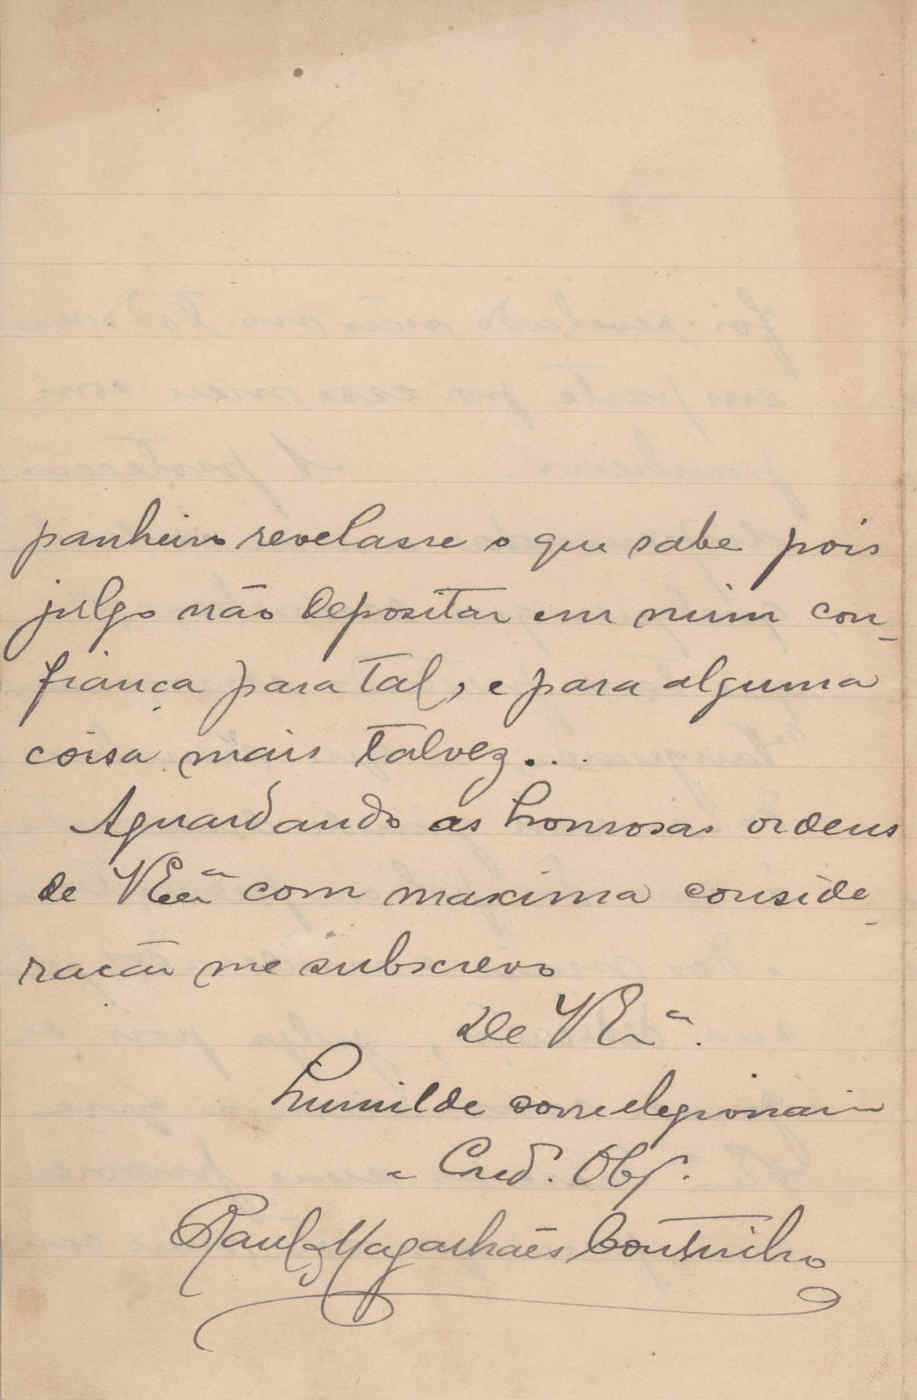 panheiro revelasse o que sabe pois
julgo não depositar em mim con-
fiança para tal, e para alguma
coisa mais talvez...
Aguardando as honrosas ordens
de VExcia com maxima conside-
ração me subscrevo
De VExa.
humilde correlegionario
e Cred. Obr.
Raul Magalhães Coutinho